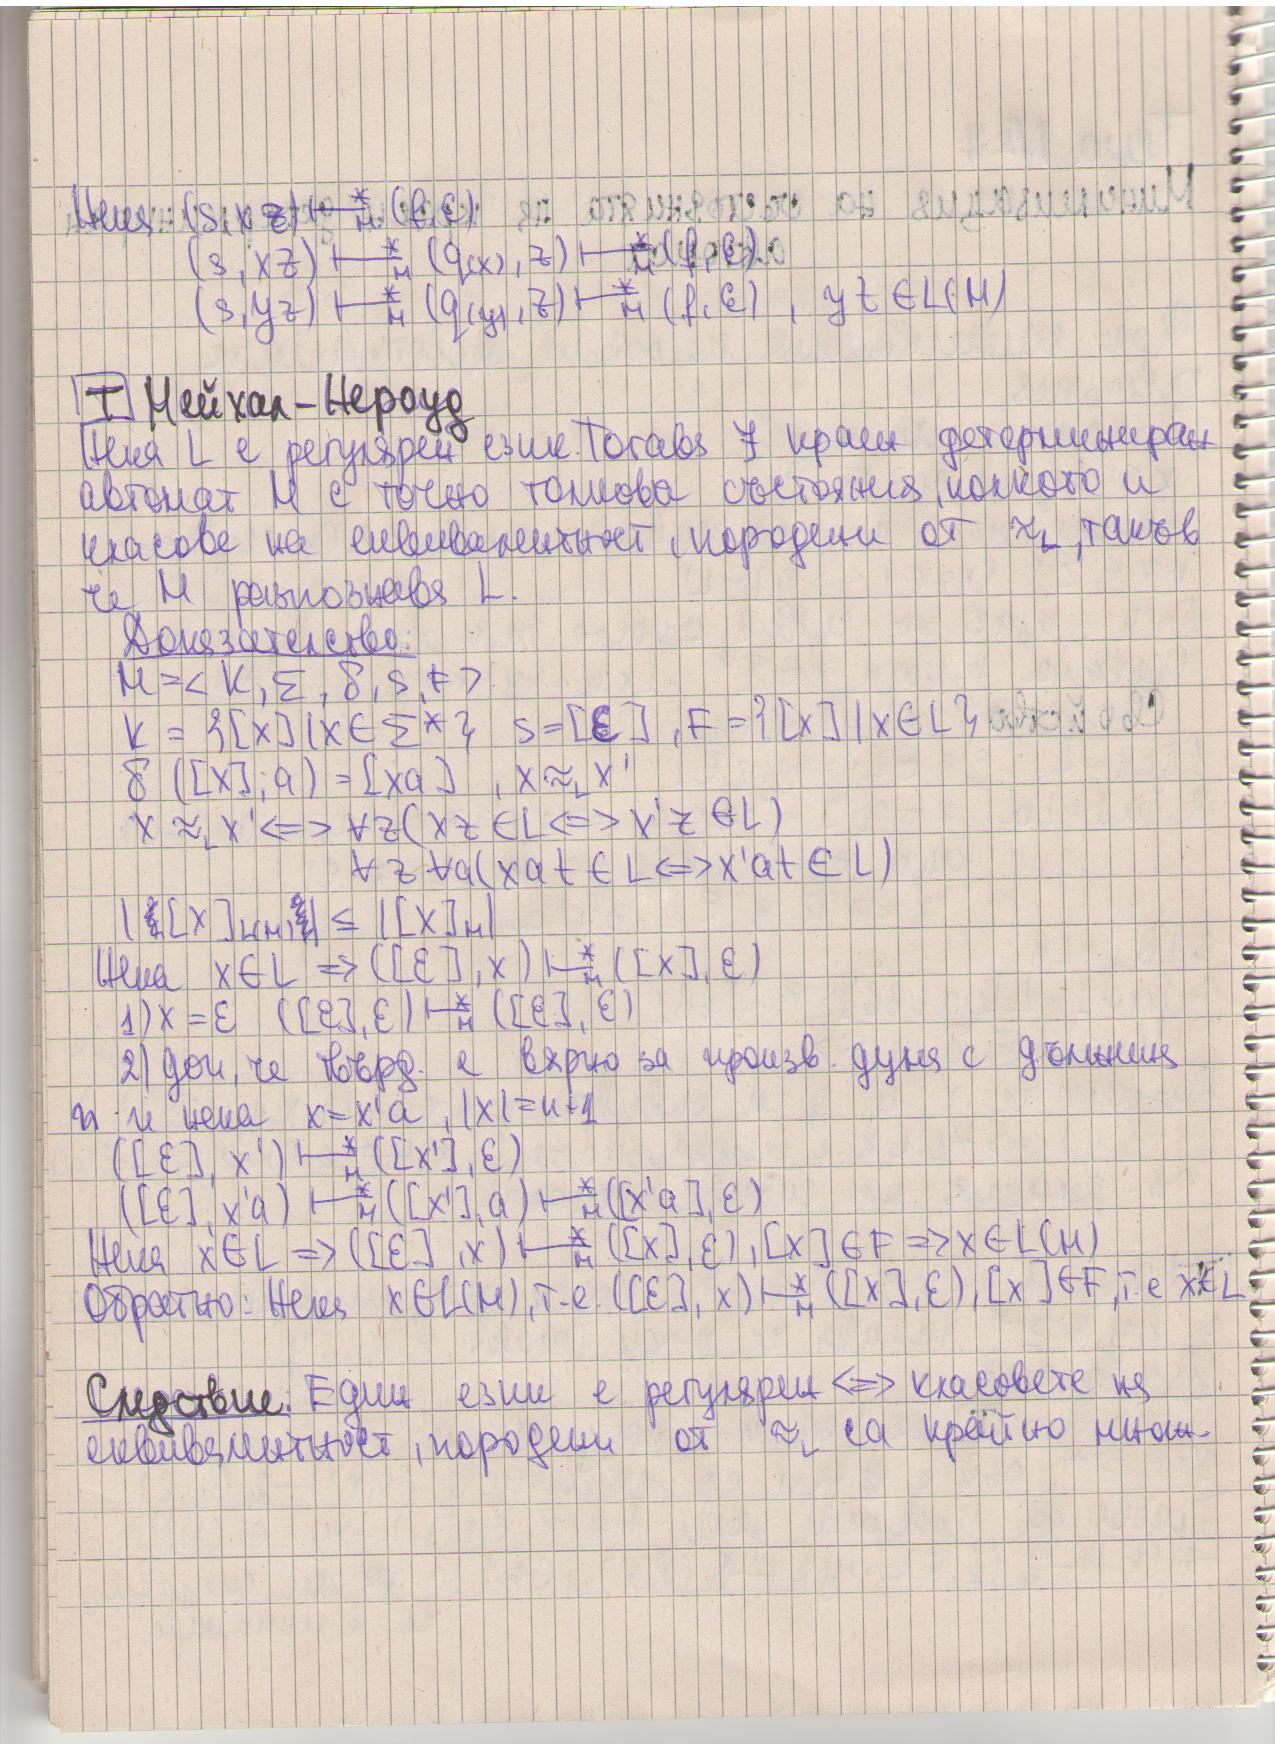 Нека (s, xz) ⊢*_M (f, ε)
(s, xz) ⊢*_M (q(x), z) ⊢*_M (f, ε)
(s, yz) ⊢*_M (q(y), z) ⊢*_M (f, ε) , yz ∈ L(M)
T Мейхал-Нероуд
Нека L е регулярен език. Тогава ∃ краен детерминиран
автомат M с точно толкова състояния, колкото и
класове на еквивалентност, породени от ≈_L, такъв
че M разпознава L.
Доказателство:
M = < K, Σ, δ, s, F >
K = {[x] | x ∈ Σ*} s = [ε] , F = {[x] | x ∈ L}
δ([x], a) = [xa] , x ≈_L x'
x ≈_L x' <=> ∀z(xz ∈ L <=> x'z ∈ L)
∀z ∀a(xaz ∈ L <=> x'az ∈ L)
|[x]_L(M)| ≤ |[x]_M|
Нека x ∈ L => ([ε], x) ⊢*_M ([x], ε)
1) x = ε ([ε], ε) ⊢*_M ([ε], ε)
2) доп, че твърд. е вярно за произв. дума с дължина
n и нека x = x'a , |x| = n+1
([ε], x') ⊢*_M ([x'], ε)
([ε], x'a) ⊢*_M ([x'], a) ⊢*_M ([x'a], ε)
Нека x ∈ L => ([ε], x) ⊢*_M ([x], ε), [x] ∈ F => x ∈ L(M)
Обратно: Нека x ∈ L(M), т.е. ([ε], x) ⊢*_M ([x], ε), [x] ∈ F, т.е x ∈ L
Следствие: Един език е регулярен <=> класовете на
еквивалентност, породени от ≈_L са крайно множ.